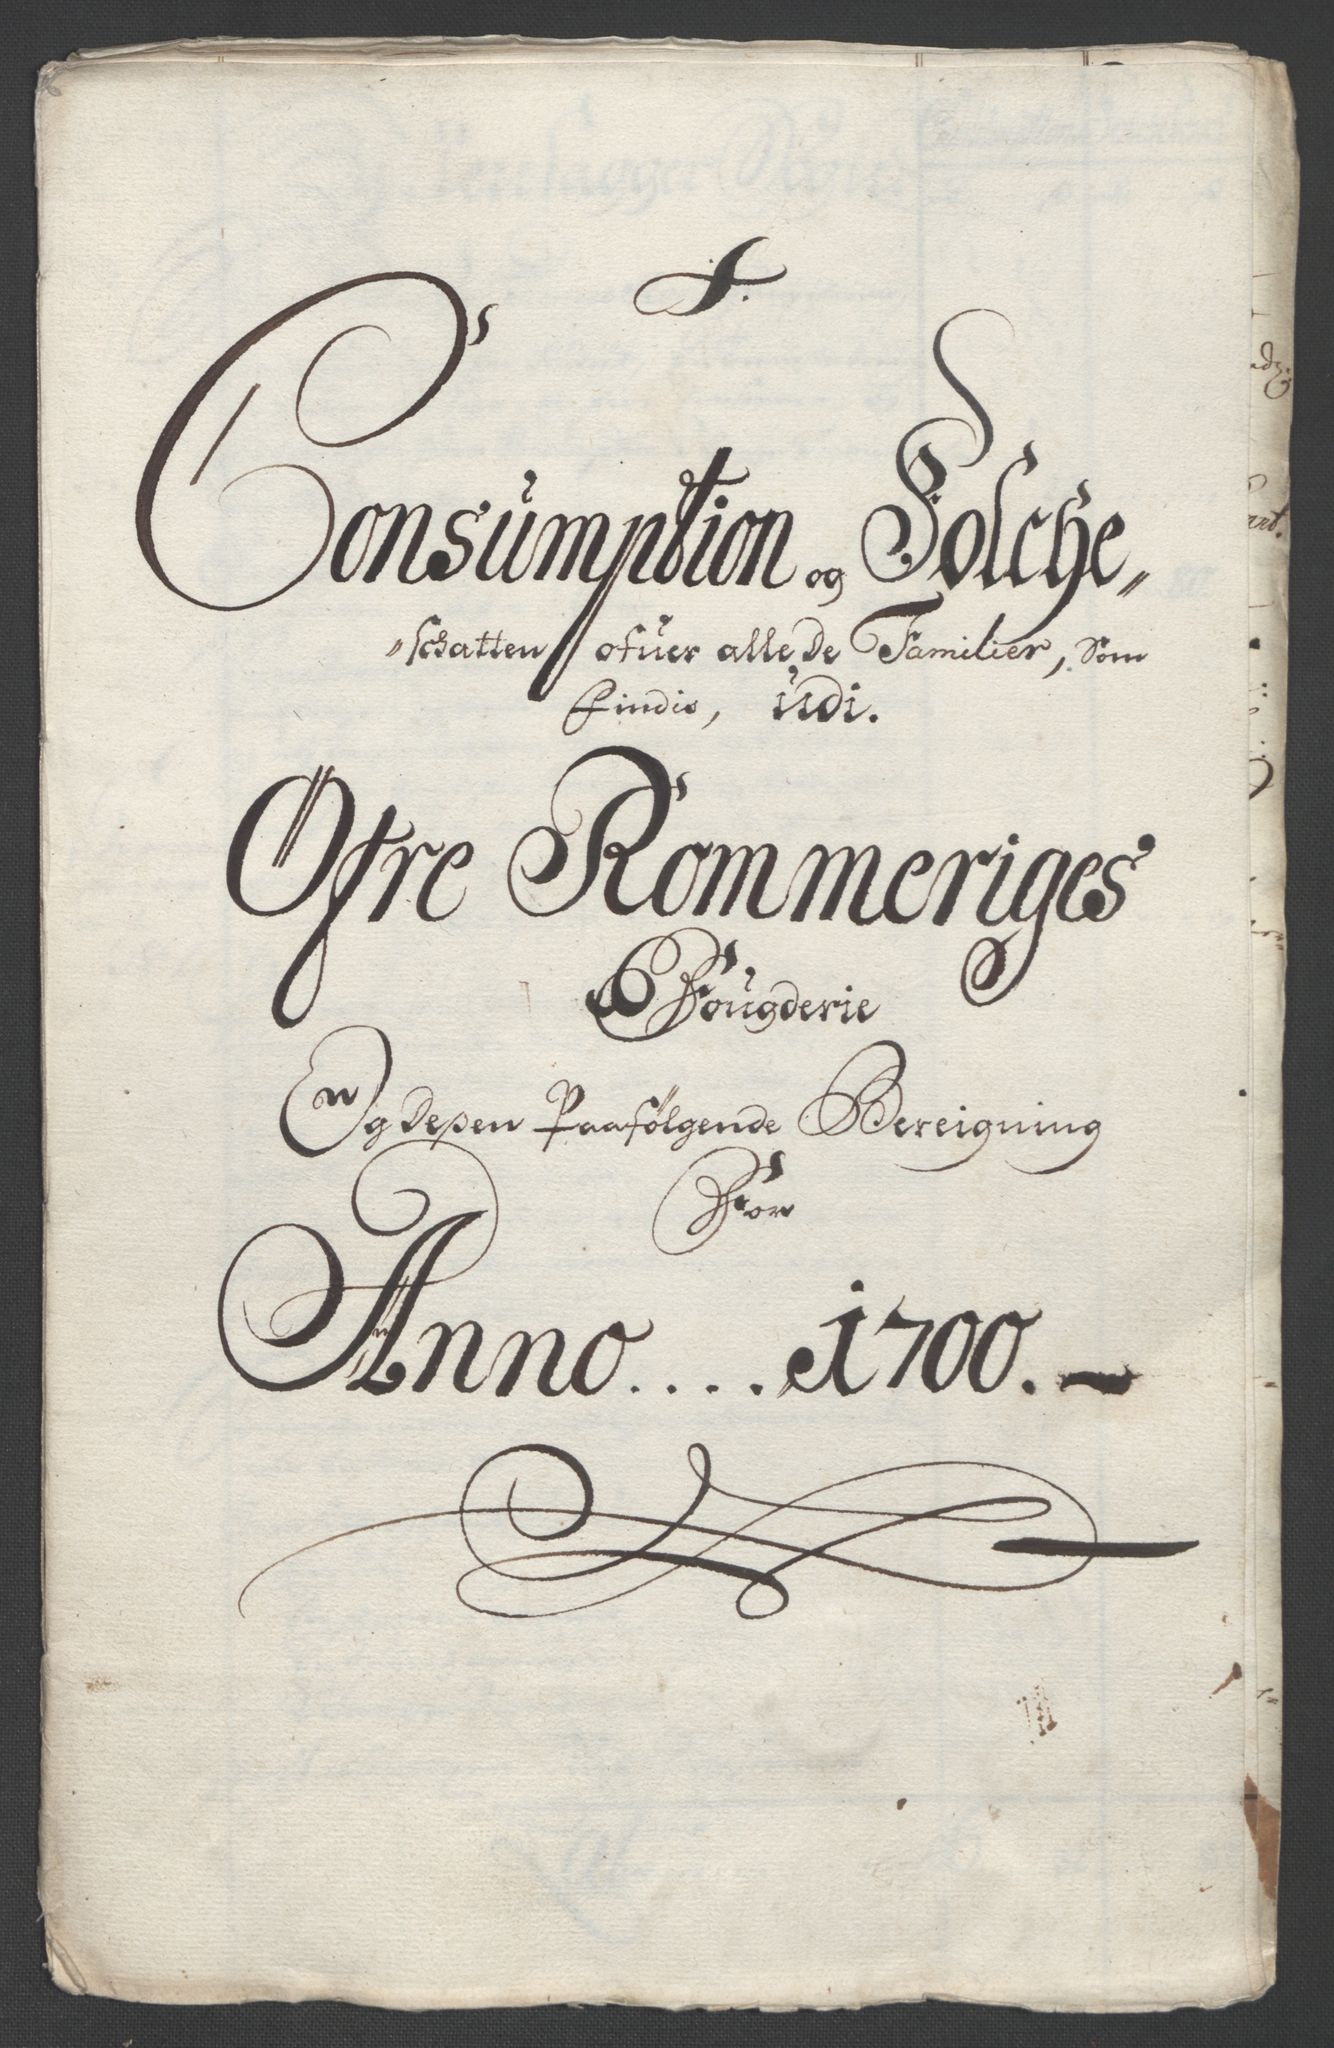 J.
Consumption og Folche〃
〃schatten ofuer alle de Familier, som
findis, udi.
Ofre Rommeriges
Fougderie
Og deßen Paafölgende Bereigning
For
Anno .... 1700. —